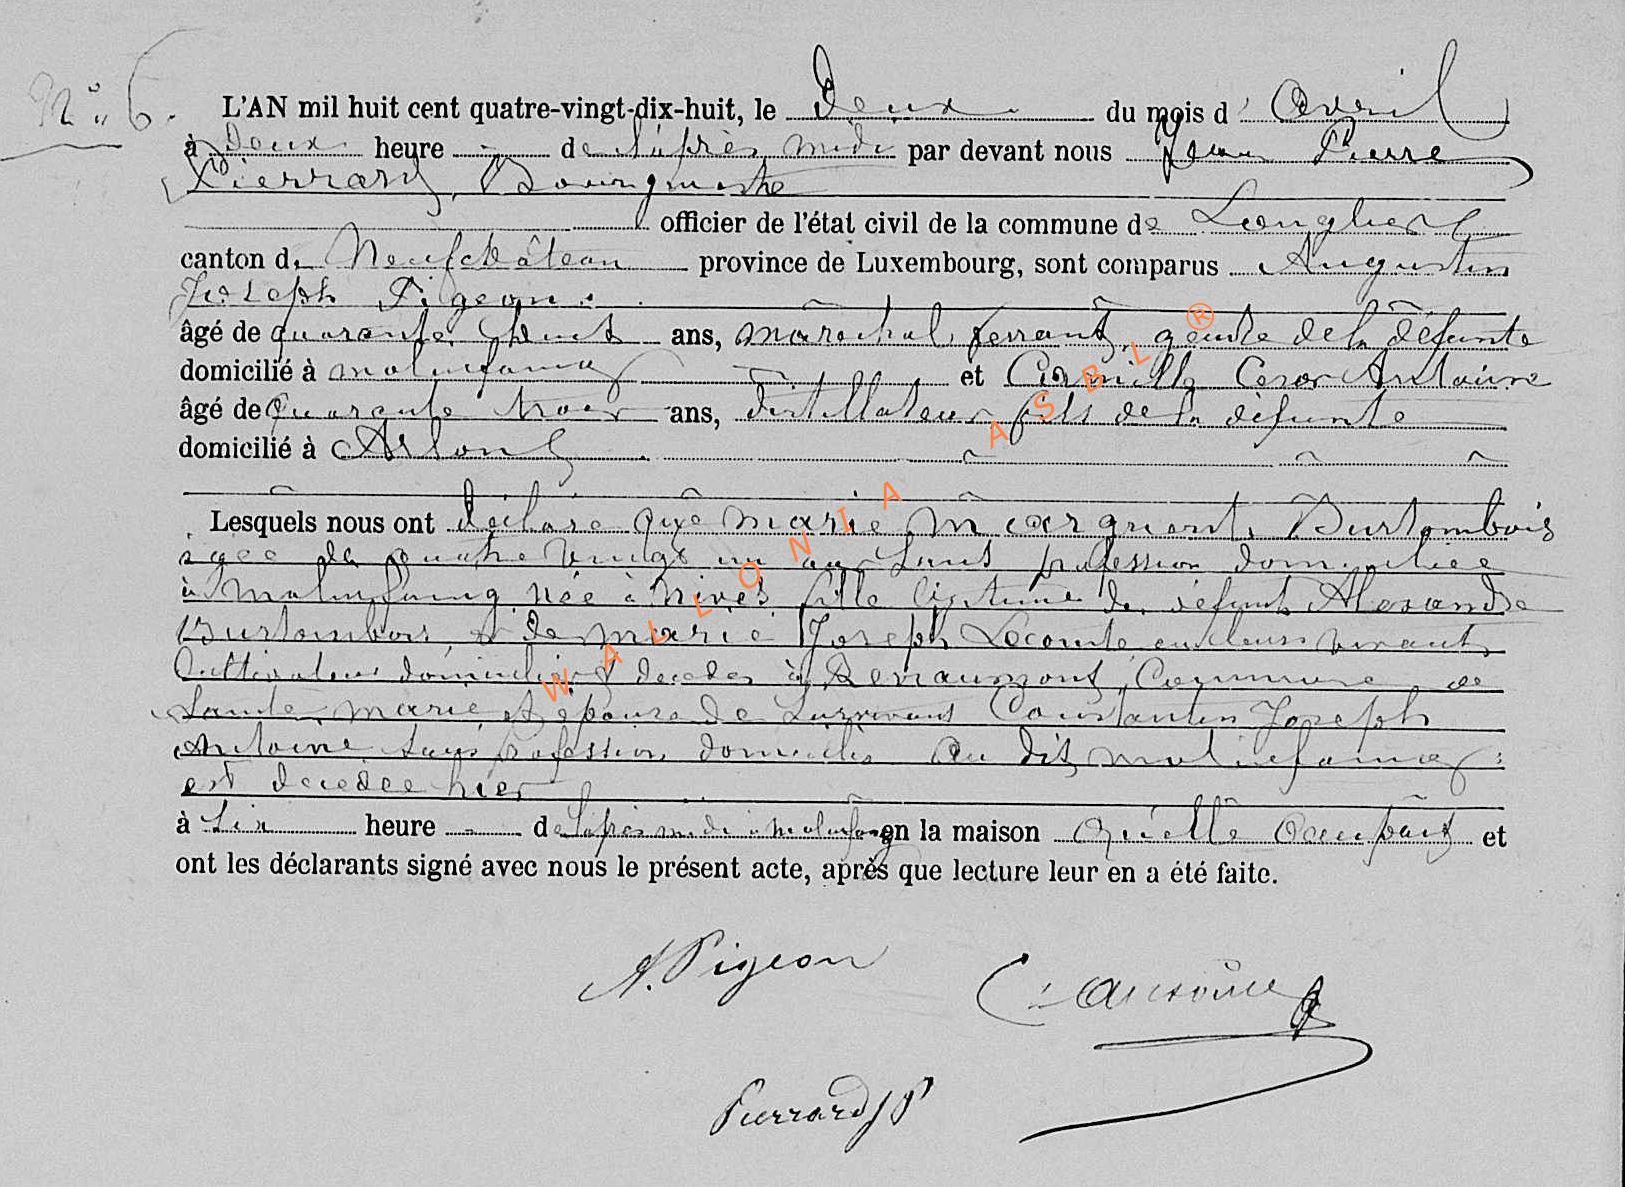 N° 6.
L'AN mil huit cent quatre-vingt-dix-huit, le Deux du mois d' Avril
à Deux heure de l'après midi par devant nous Jean Pierre
Pierrard, Bourgmestre
officier de l'état civil de la commune de Longlier
canton de Neufchâteau province de Luxembourg, sont comparus Augustin
Joseph Pigeon
âgé de quarante huit ans, maréchal ferrant, gendre de la défunte
domicilié à molinfaing et Camille Cesar Antoine
âgé de Quarante trois ans, distillateur fils de la défunte
domicilié à Arlon
Lesquels nous ont déclaré que marie marguerite Burtombois
agée de quatre vingt un ans sans profession domiciliée
à molinfaing née à nives fille légitime de défunts Alexandre
Burtombois et de marie Joseph Lecomte en leurs vivants
Cultivateurs domiciliés et decedes à Rosseumont Commune de
Sainte marie et épouse de survivant Constantin Joseph
Antoine sans profession domicilié au dit molinfaing
est decedée hier
à six heure de l'après midi à molinfaing en la maison qu'elle occupait et
ont les déclarants signé avec nous le présent acte, après que lecture leur en a été faite.
A. Pigeon
C. Antoine
Pierrard JP
WALLONIA ASBL ®